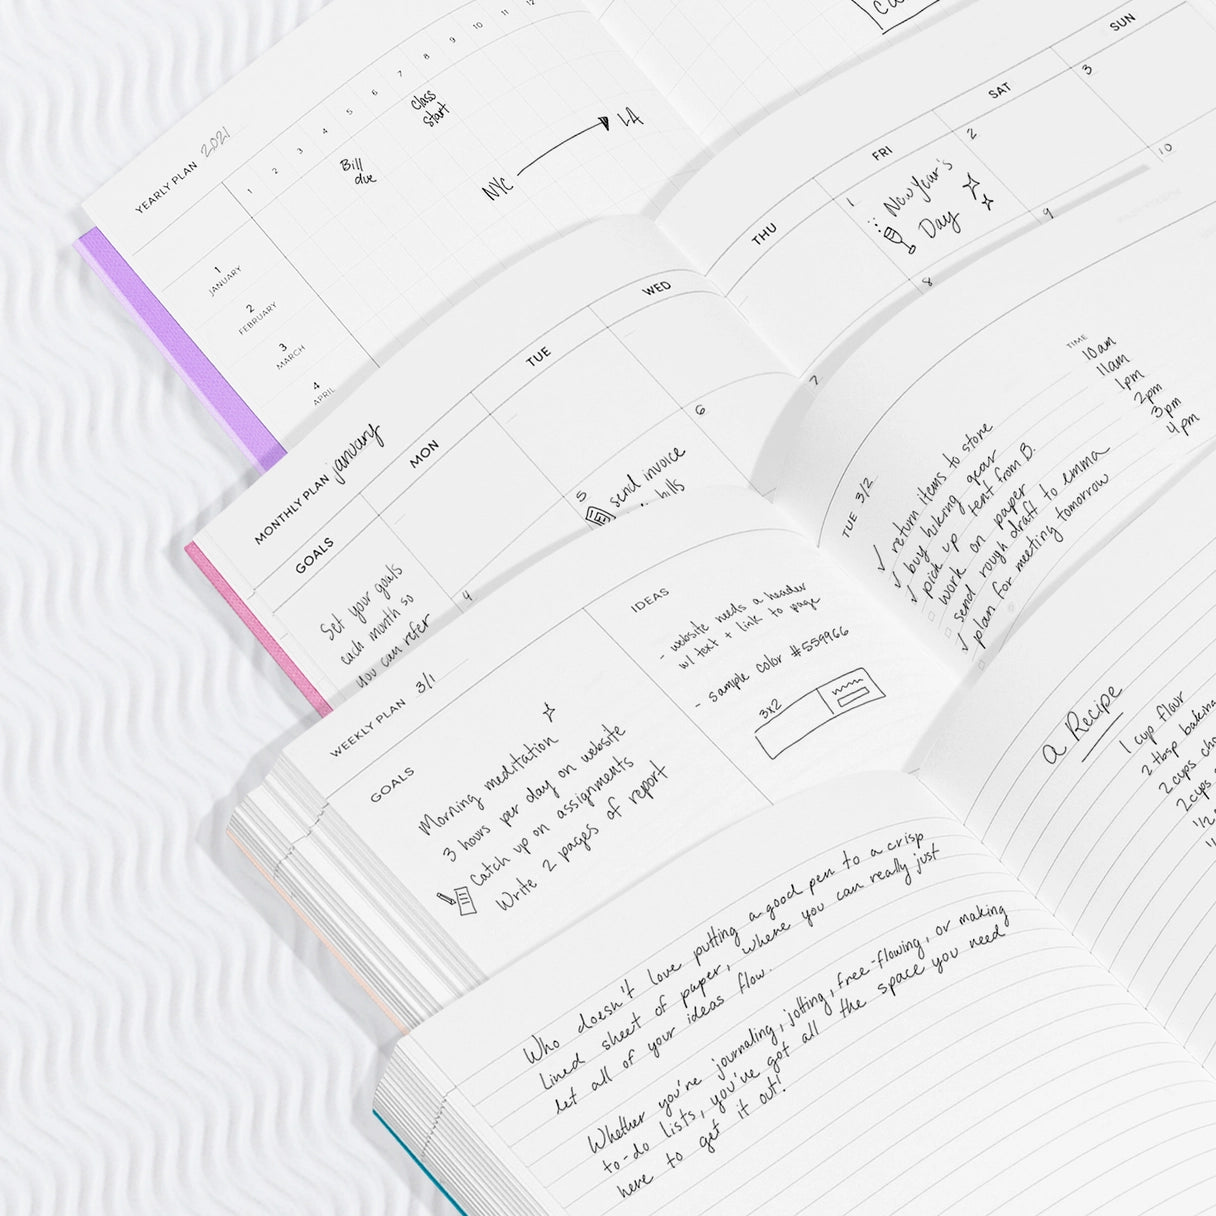 YEARLY PLAN 2021
1 2 3 4 5 6 7 8 9 10 11 12
Class
start
Bill
due
NYC LA
1
JANUARY
2
FEBRUARY
3
MARCH
4
APRIL
MONTHLY PLAN january
GOALS
MON
TUE
WED
THU
FRI
SAT
SUN
1
2
3
New Year's
Day
4
5
6
7
8
9
10
send invoice
bills
Set your goals
each month so
you can refer
WEEKLY PLAN 3/1
GOALS
Morning meditation
3 hours per day on website
Catch up on assignments
Write 2 pages of report
IDEAS
- website needs a header
w/ text + link to page
- sample color #559966
3x2
TUE 3/2
TIME
return items to store 10am
buy hiking gear 11am
pick up tent from B. 1pm
work on paper 2pm
send rough draft to emma 3pm
plan for meeting tomorrow 4pm
Who doesn't love putting a good pen to a crisp
lined sheet of paper, where you can really just
let all of your ideas flow.
Whether you're journaling, jotting, free-flowing, or making
to-do lists, you've got all the space you need
here to get it out!
a Recipe
1 cup flour
2 tbsp baking
2 cups
2 cups
1/2